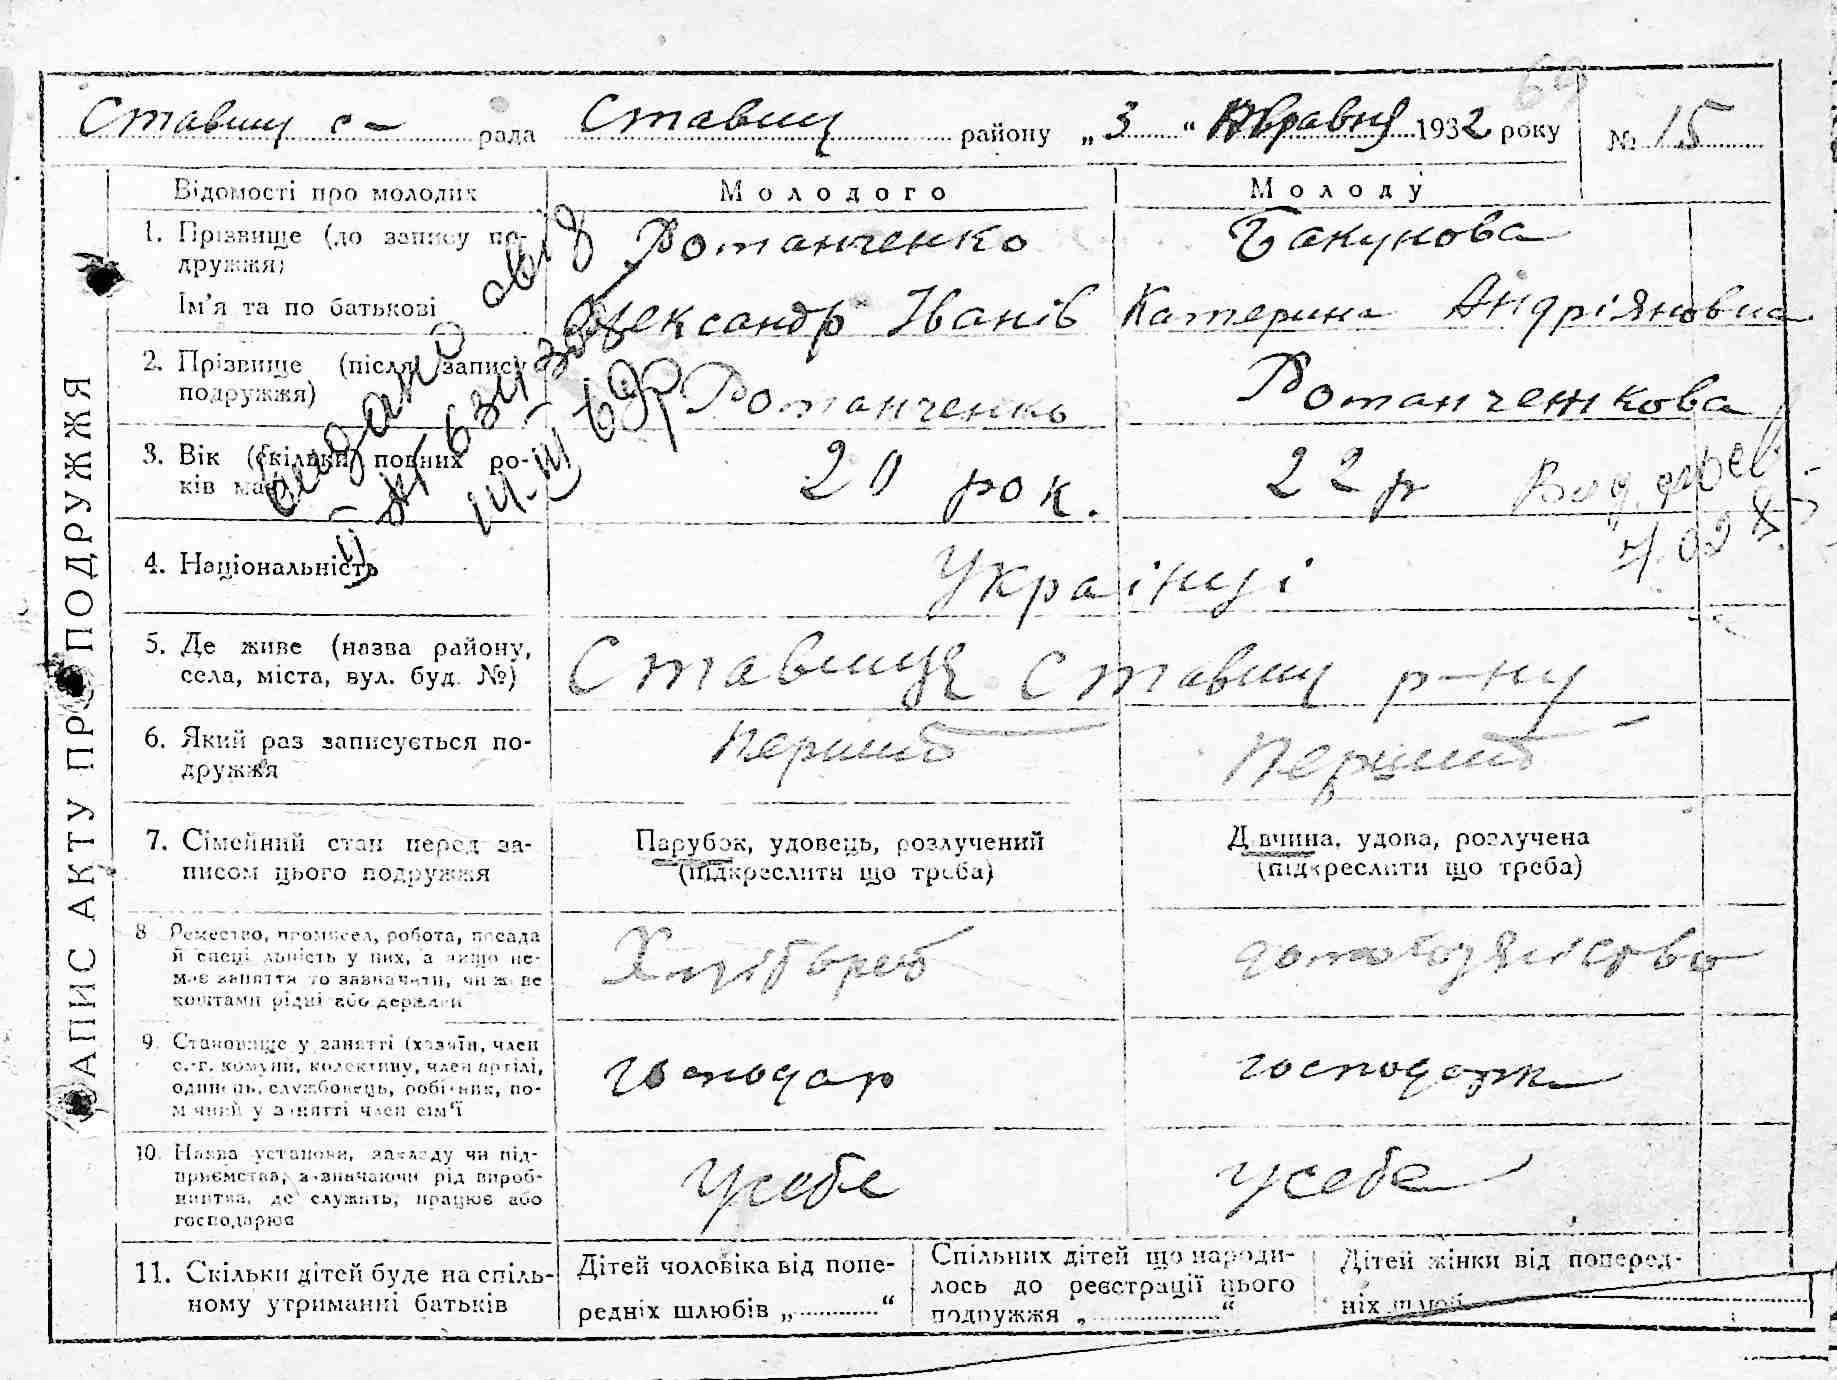 69
Ставищ с – рада Ставищ району „ 3 “ 1932 року № 15
ЗАПИС АКТУ ПРО ПОДРУЖЖЯ
Відомості про молодих
Молодого
Молоду
1. Прізвище (до запису по-
дружжя)
Ротанченко
Бакунова
Ім'я та по батькові
Олександр Іванів
Катерина Андріяновна
2. Прізвище (після запису
подружжя)
Ротанченко
Ротанченкова
3. Вік (скільки повних ро-
ків має)
20 рок.
22 р
видано
4. Національність
Українці
5. Де живе (назва району,
села, міста, вул. буд. №)
Ставище Ставищ р-ну
6. Який раз записується по-
дружжя
Перший
Перший
7. Сімейний стан перед за-
писом цього подружжя
Парубок, удовець, розлучений
(підкреслити що треба)
Дівчина, удова, розлучена
(підкреслити що треба)
8 Ремество, промисел, робота, посада
й спеціяльність у них, а якщо не-
має заняття то зазначити, чи живе
коштами рідні або держави
Хлібороб
домохозяйство
9. Становище у занятті (хазяїн, член
с.-г. комуни, колективу, член артілі,
одинець, службовець, робітник, по-
мічний у занятті член сім'ї
господар
господарка
10. Назва установи, закладу чи під-
приємства, зазначаючи рід вироб-
ництва, де служить, працює або
господарює
У себе
у себе
11. Скільки дітей буде на спіль-
ному утриманні батьків
Дітей чоловіка від попе-
редніх шлюбів „............“
Спільних дітей що народи-
лось до реєстрації цього
подружжя „....................“
Дітей жінки від поперед-
ніх шлюб